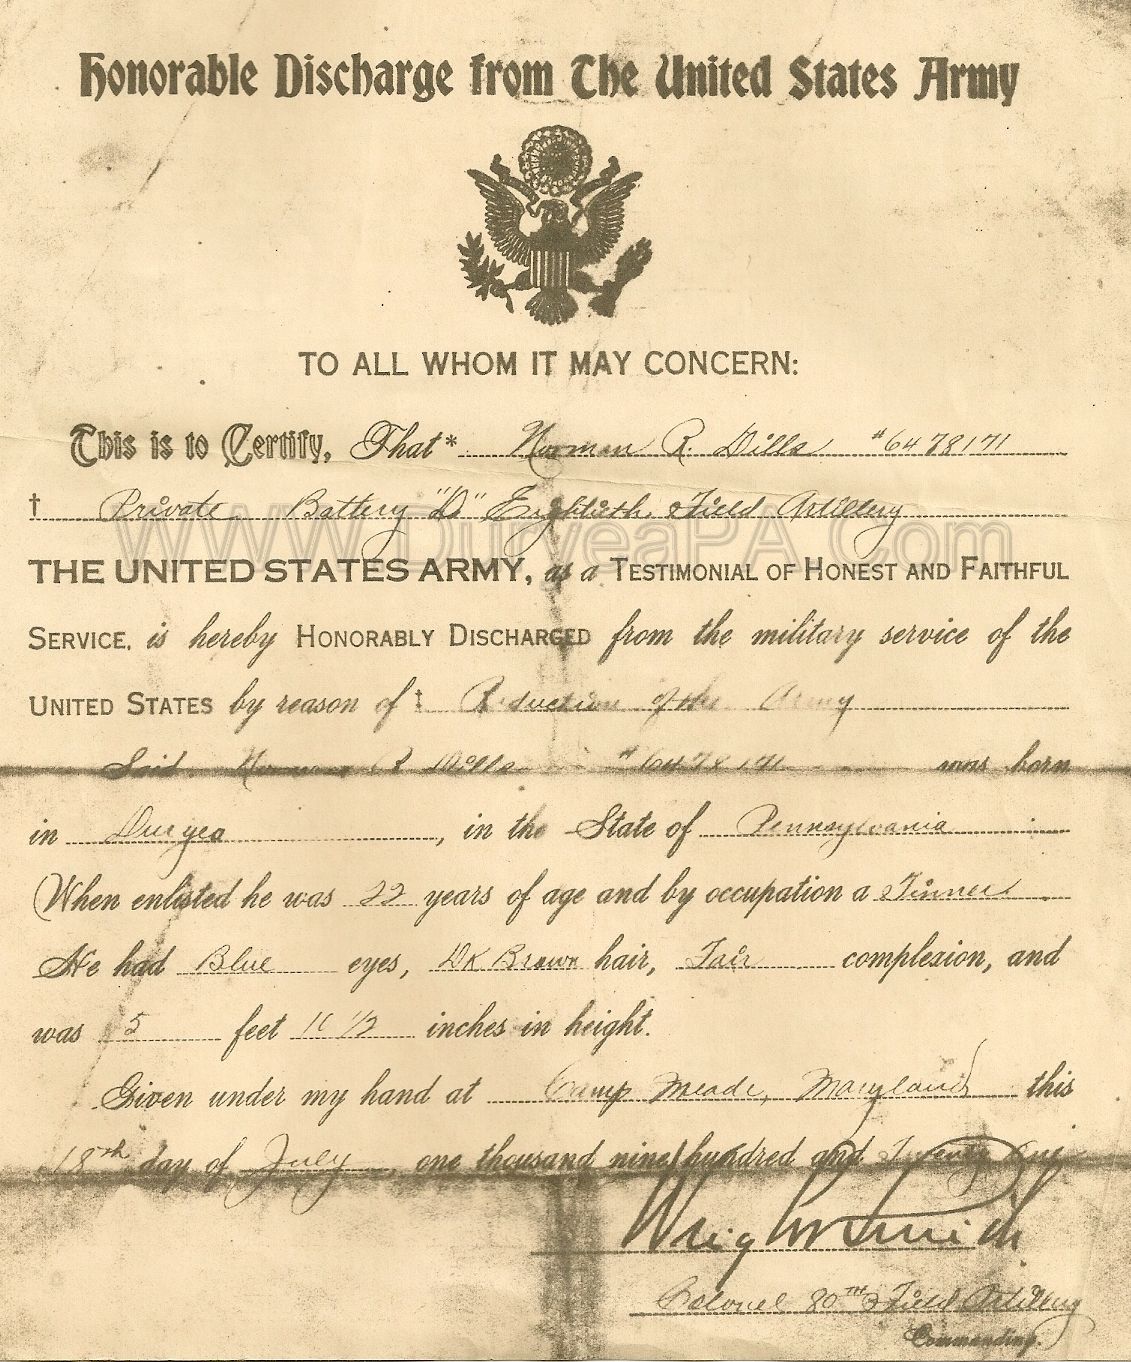 Honorable Discharge from The United States Army
TO ALL WHOM IT MAY CONCERN:
This is to Certify, That* Norman R. Dills #6478171
† Private Battery "D" Eightieth Field Artillery
www.DuryeaPA.Com
THE UNITED STATES ARMY, as a TESTIMONIAL OF HONEST AND FAITHFUL
SERVICE, is hereby HONORABLY DISCHARGED from the military service of the
UNITED STATES by reason of ‡ Reduction of the Army
Said Norman R Dills #6478171 was born
in Duryea, in the State of Pennsylvania
When enlisted he was 22 years of age and by occupation a Tinner
He had Blue eyes, DK Brown hair, Fair complexion, and
was 5 feet 11 1/2 inches in height.
Given under my hand at Camp Meade, Maryland this
18th day of July, one thousand nine hundred and Twenty One
Wright Smith
Colonel 80TH Field Artillery
Commanding.